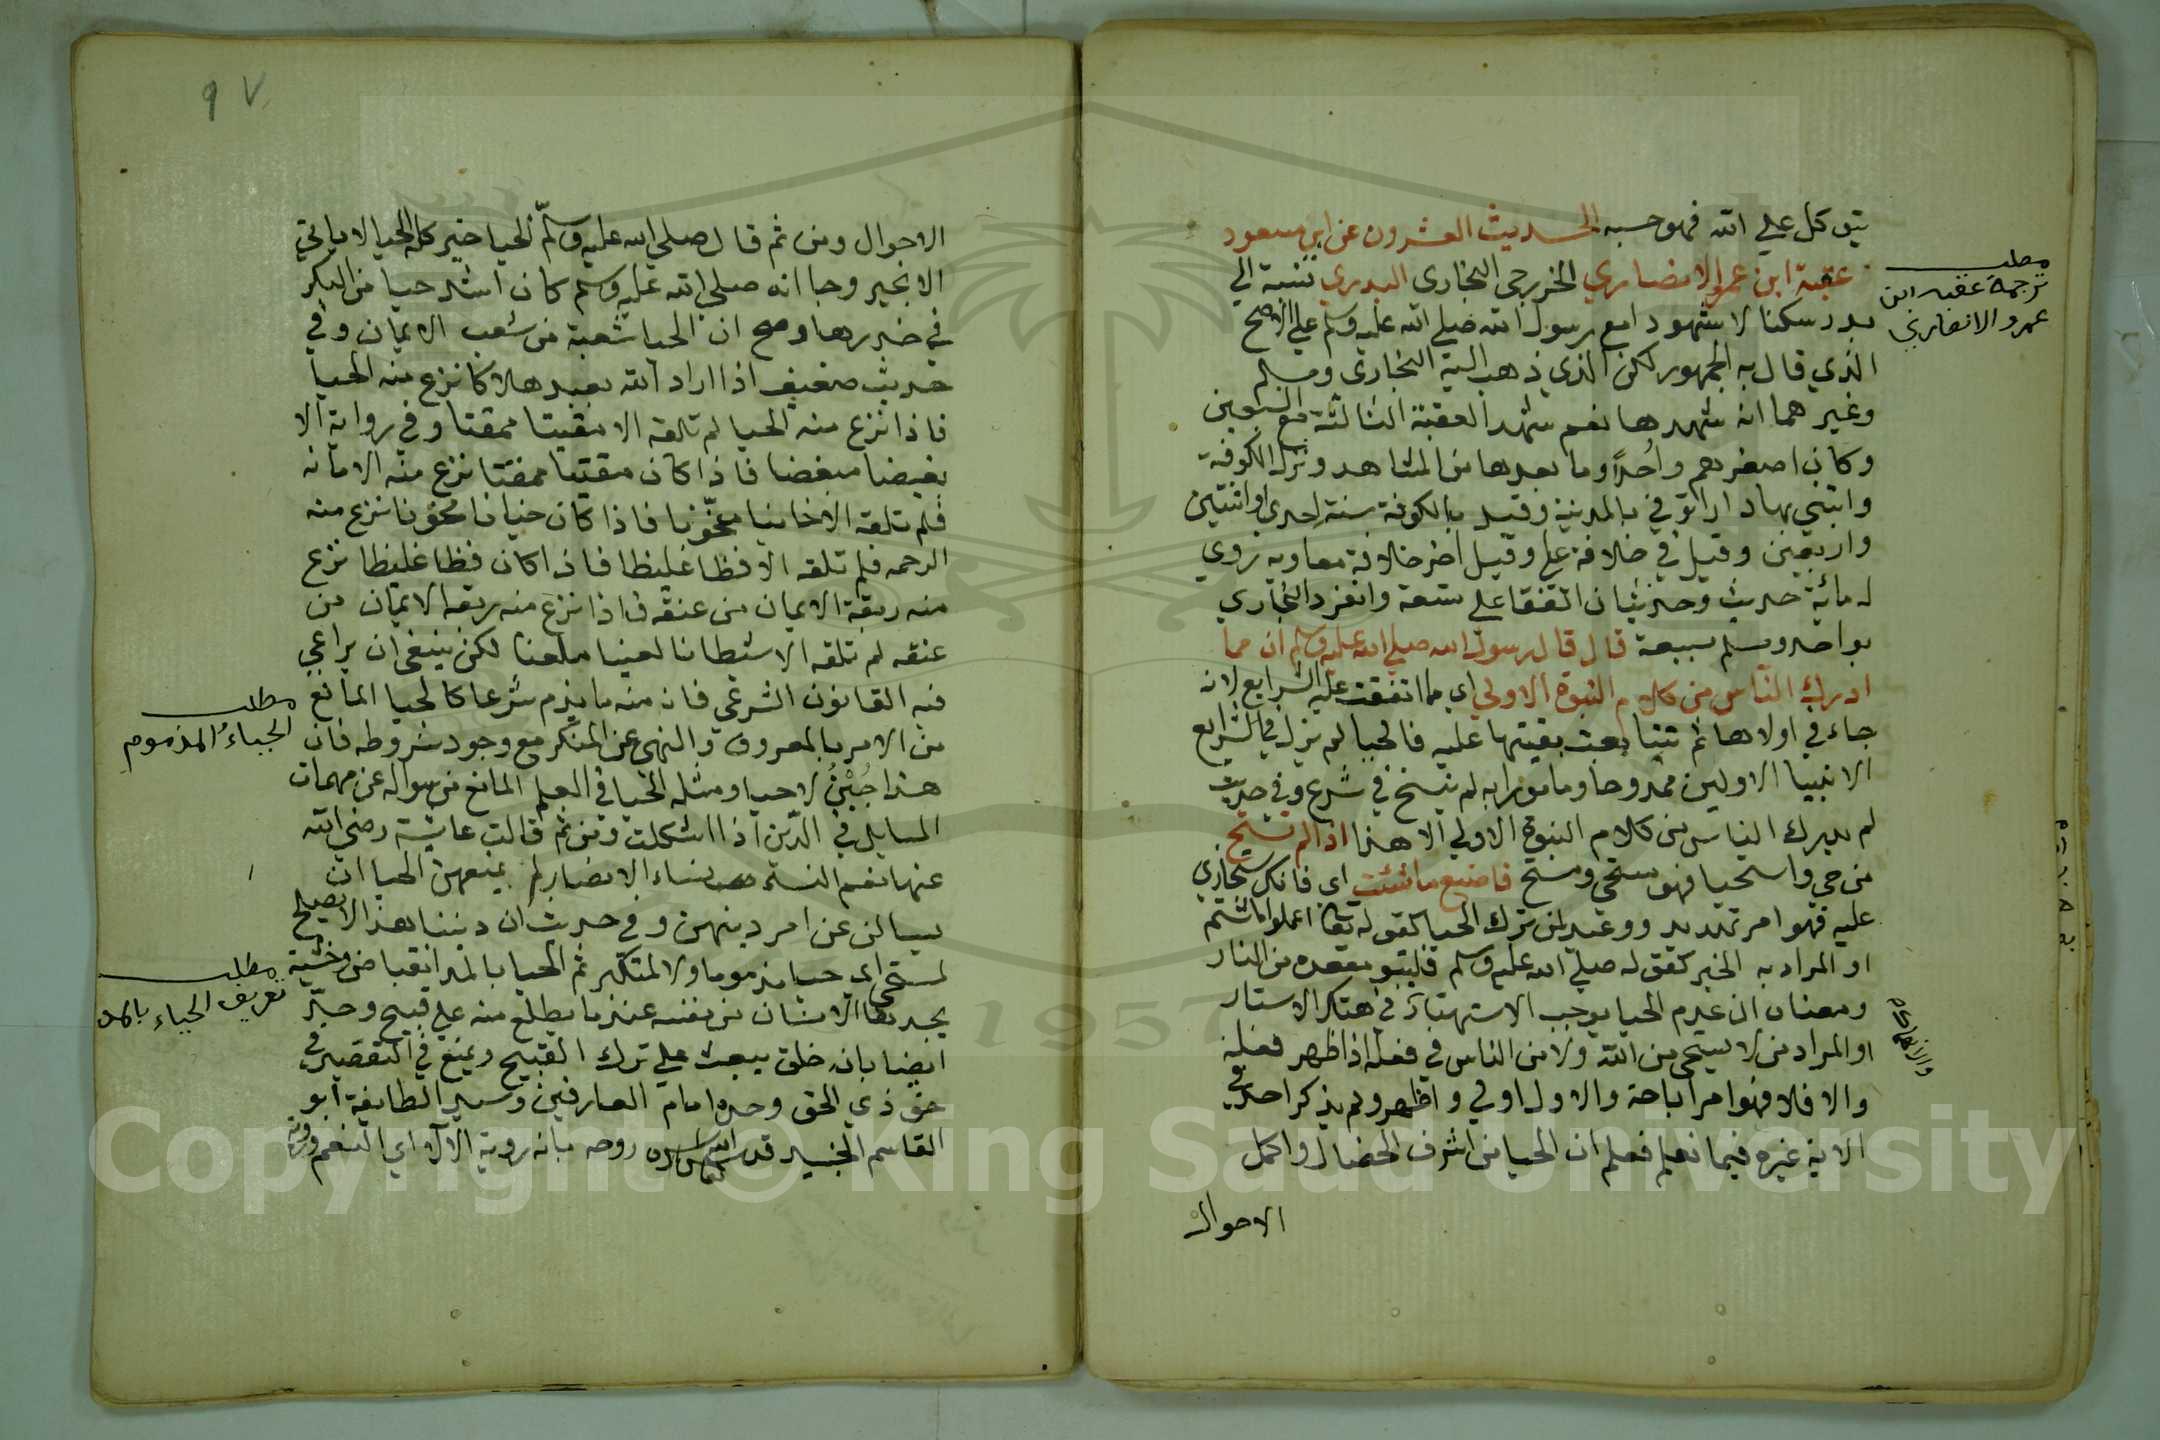 يتوكل علي الله فهو حسبه الحديث العشرون عن ابي مسعود
عقبة ابن عمرو الانصاري الخزرجي النجاري البدري نسبة الي
بدر سكنا لا شهودا مع رسول الله صلي الله عليه وسلم علي الاصح
الذي قال به الجمهور لكن الذي ذهب اليه البخاري ومسلم
وغيرهما انه شهدها نعم شهد العقبة الثالثة مع السبعين
وكان اصغرهم واُحُداً وما بعدها من المشاهد ونزل الكوفة
وابتني بها دارا توفي بالمدينة وقيل بالكوفة سنة احدي او اثنتين
واربعين وقيل في خلافة علي وقيل اخر خلافة معاوية روي
له مائة حديث وحديثان اتفقا على تسعة وانفرد البخاري
بواحد ومسلم بسبعة قال قال رسول الله صلي الله عليه وسلم ان مما
ادرك الناس من كلام النبوة الاولي اي مما اتفقت عليه الشرايع لانه
جاء في اولاها ثم تتابعت بقيتها عليه فالحيا لم يزل في الشرايع
الانبيا الاولين ممدوحا ومامورا به لم ينسخ في شرع وفي حديث
لم يدرك الناس من كلام النبوة الاولي الا هذا اذا لم تستح
من حي واستحيا فهو مستحي ومستح فاصنع ما شئت اي فانك ستجازي
عليه فهو امر تهديد ووعيد لمن ترك الحيا كقوله تعا اعملوا ما شئتم
او المراد به الخبر كقوله صلي الله عليه وسلم فليتبو مقعده من النار
ومعناه ان عدم الحيا يوجب الاستهتار في هتك الاستار
او المراد من لا يستحي من الله ولا من الناس في فعله اذا ظهر فعله
والا فلا فهو امر اباحة والاول اولي واظهر ولم يذكر احد في
الاية غيره فيما نعلم فعلم ان الحيا من اشرف الخصال واكمل
الاحوال
مطلب
ترجمة عقبه ابن
عمرو الانصاري
٩٧
الاحوال ومن ثم قال صلي الله عليه وسلم الحيا خير كله الحيا لا ياتي
الا بخير وجا انه صلي الله عليه وسلم كان اشد حيا من البكر
في خدرها وصح ان الحيا شعبة من شعب الايمان وفي
حديث ضعيف اذا اراد الله بعبد هلاكا نزع منه الحيا
فاذا نزع منه الحيا لم تلقه الا مقيتا ممقتا وفي رواية الا
بغيضا مبغضا فاذا كان مقيتا ممقتا نزع منه الامانه
فلم تلقه الا خاينا مخوّنا فاذا كان خيانا مخونا نزع منه
الرحمه فلم تلقه الا فظا غليظا فاذا كان فظا غليظا نزع
منه ربقة الايمان من عنقه فاذا نزع منه ربقه الايمان من
عنقه لم تلقه الا شيطانا لعينا ملعنا لكن ينبغي ان يراعي
فيه القانون الشرعي فان منه ما يذم شرعا كالحيا المانع
من الامر بالمعروف والنهي عن المنكر مع وجود شروطه فان
هذا جُبْنٌ لا حيا ومثله الحيا في العلم المانع من سواله عن مهمات
المسايل في الدين اذا اشكلت ومن ثم قالت عايشة رضي الله
عنها نعم النساء نساء الانصار لم يمنعهن الحيا ان
يسالن عن امر دينهن وفي حديث ان ديننا هذا لا يصلح
لمستحي اي حيا مذموما ولا لمتكبر ثم الحيا بالمد انقباض وخشية
يجدها الانسان من نفسه عندما يطلع منه علي قبيح وحدّ
ايضا بانه خلق يبعث علي ترك القبيح ويمنع في التقصير في
حق ذي الحق وحده امام العارفين وسيد الطايفة ابو
القاسم الجنيد قدس الله روحه بانه روية الآلاء اي النعم
مطلب
الحياءُ المذموم
مطلب
تعريف الحياء بالمد
Copyright © King Saud University
1957